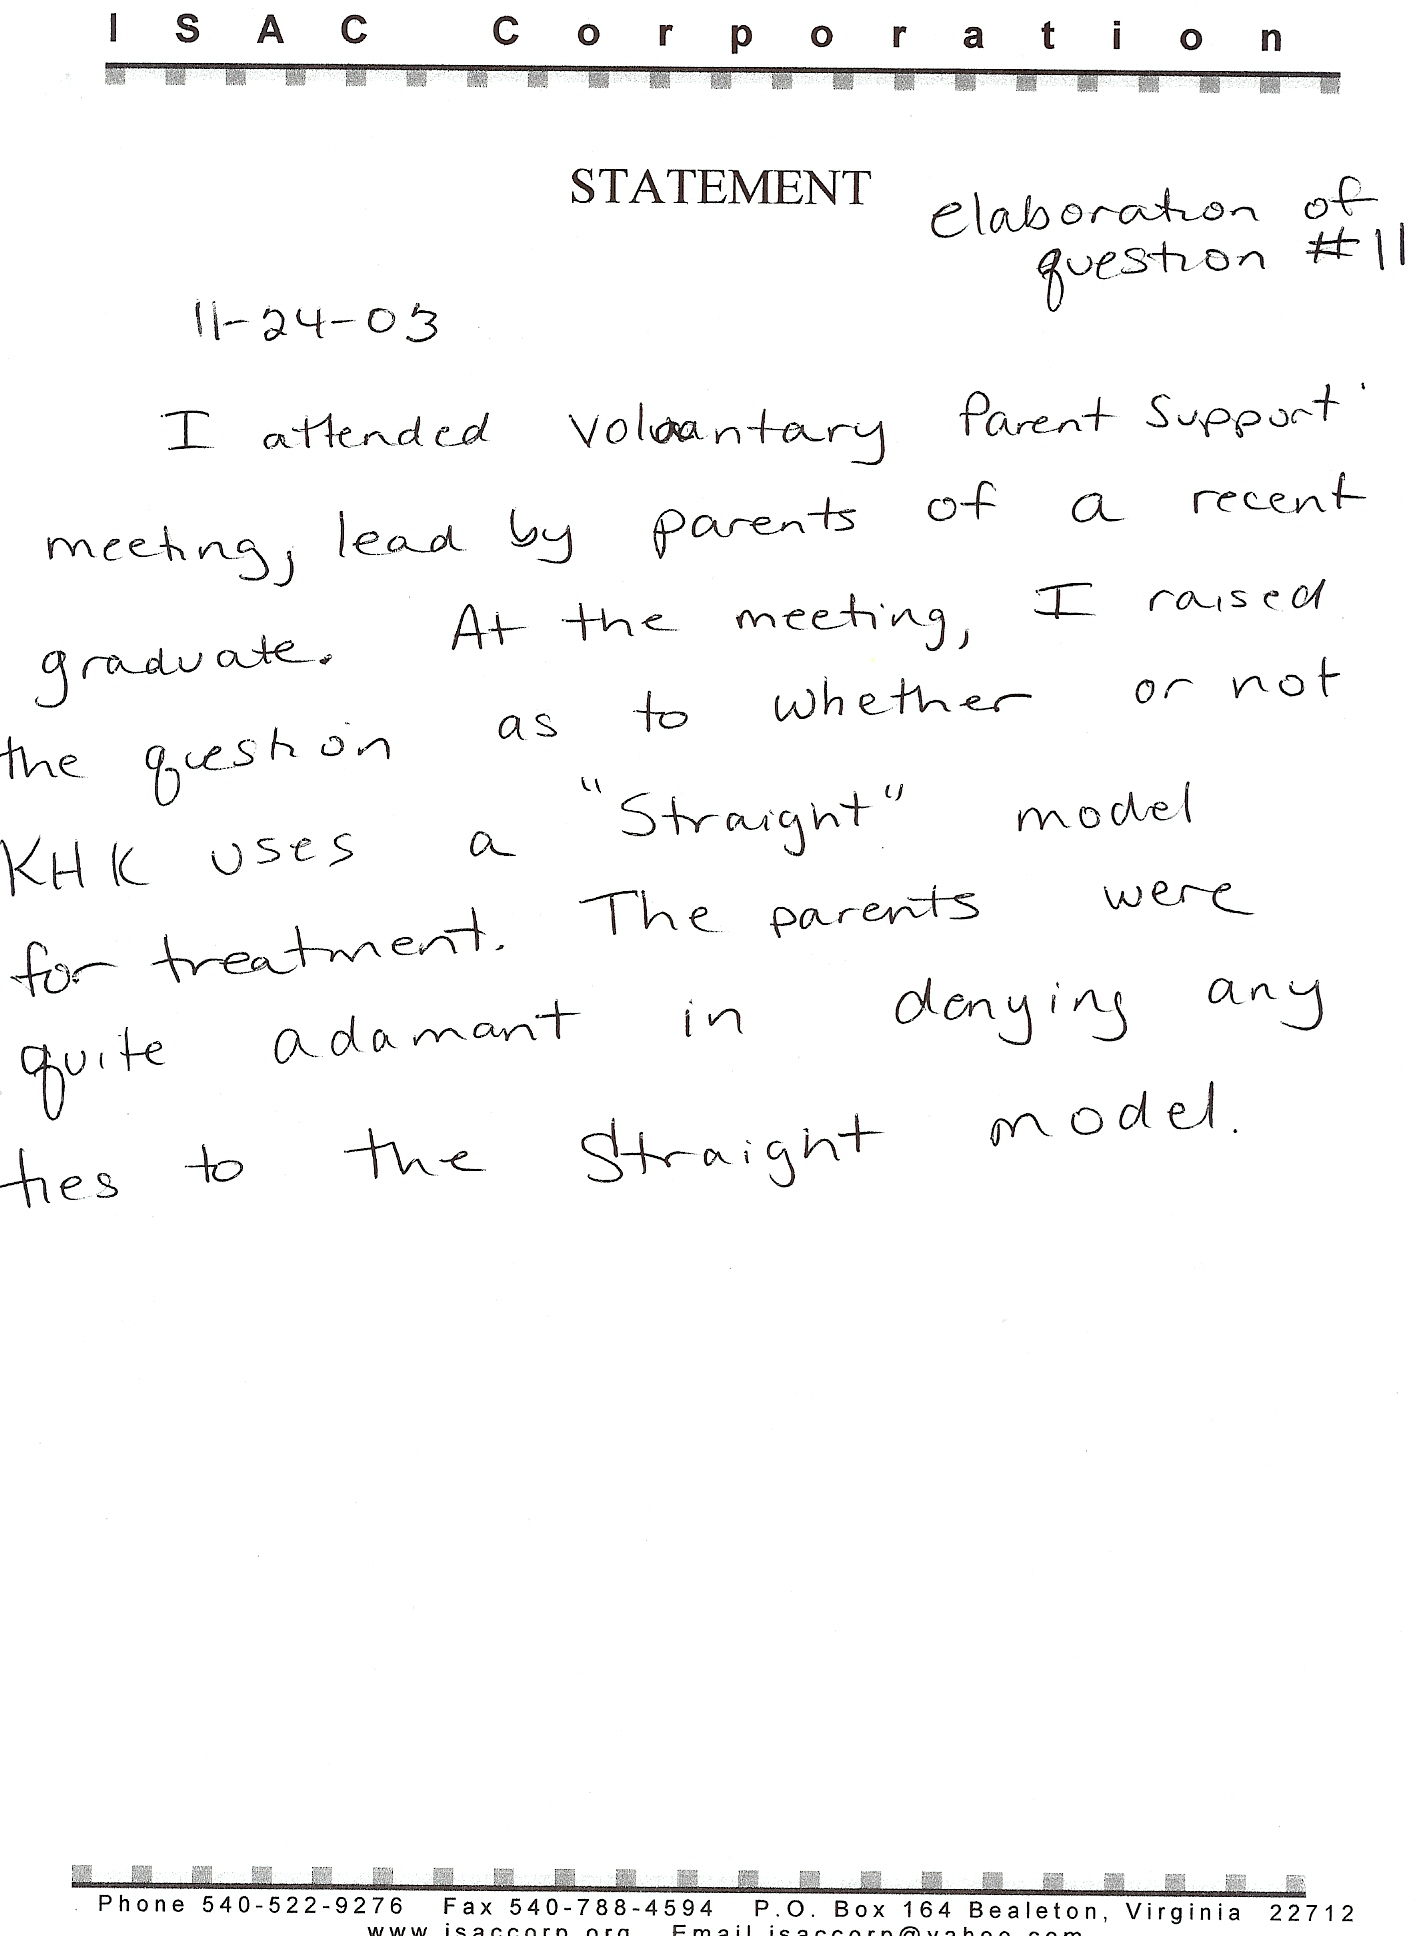 ISAC Corporation
STATEMENT
elaboration of
question #11
11-24-03
I attended volantary Parent Support
meeting, lead by parents of a recent
graduate. At the meeting, I raised
the question as to whether or not
KHK uses a "Straight" model
for treatment. The parents were
quite adamant in denying any
ties to the Straight model.
Phone 540-522-9276 Fax 540-788-4594 P.O. Box 164 Bealeton, Virginia 22712
www.isaccorp.org Email isaccorp@yahoo.com